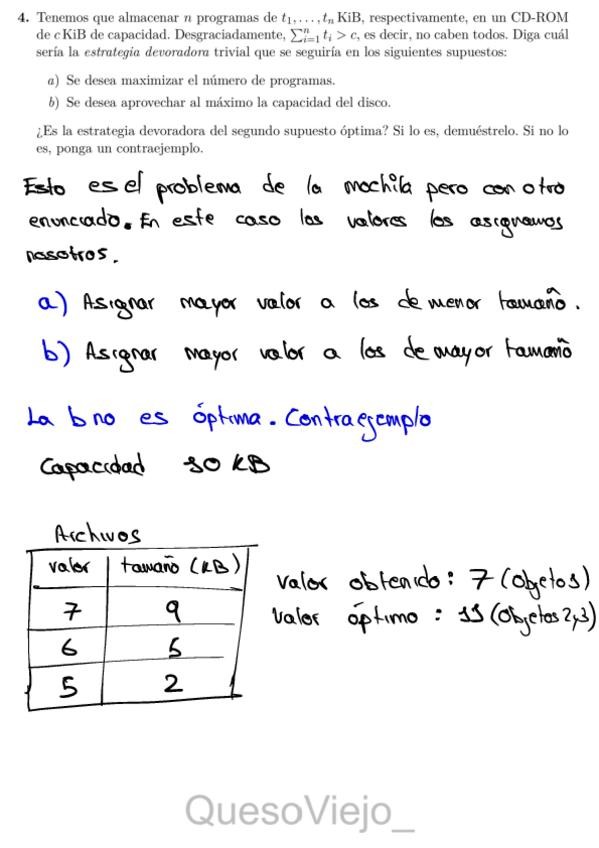 4. Tenemos que almacenar n programas de t₁, . . . , tₙ KiB, respectivamente, en un CD-ROM
de c KiB de capacidad. Desgraciadamente, ∑ⁿᵢ₌₁ tᵢ > c, es decir, no caben todos. Diga cuál
sería la estrategia devoradora trivial que se seguiría en los siguientes supuestos:
a) Se desea maximizar el número de programas.
b) Se desea aprovechar al máximo la capacidad del disco.
¿Es la estrategia devoradora del segundo supuesto óptima? Si lo es, demuéstrelo. Si no lo
es, ponga un contraejemplo.
Esto es el problema de la mochila pero con otro
enunciado. En este caso los valores los asignamos
nosotros.
a) Asignar mayor valor a los de menor tamaño.
b) Asignar mayor valor a los de mayor tamaño
La b no es óptima. Contraejemplo
Capacidad 10 KB
Archivos
valor tamaño (KB)
7 9
6 5
5 2
valor obtenido: 7 (objeto 1)
valor óptimo: 11 (objetos 2y3)
QuesoViejo_